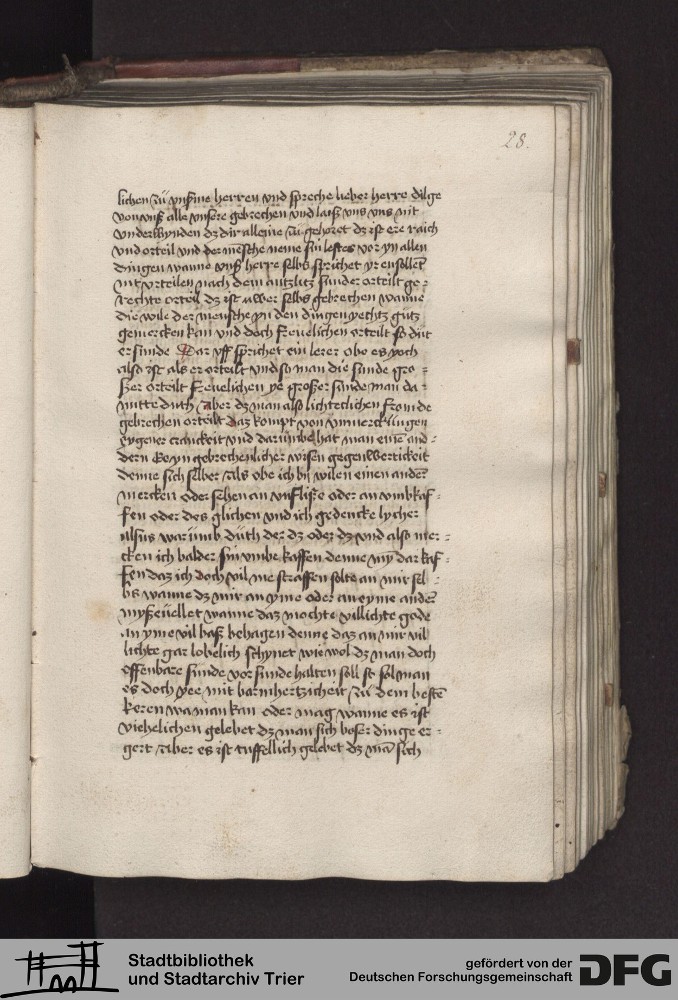 28.
lichen zů vnßme herren vnd spreche lieber herre dilge
von vnß alle vnsere gebrechen vnd laiß vns vns nit
vnderwynden dz dir alleine zů gehoret dz ist ere raich
vnd orteil vnd der mēsche neme sin selbes vor yn allen
dingen wanne vnß herre selbs sprichet yr ensollent
nit vrteilen nach dem antzlitz sunder orteilt ge-
rechte orteil dz ist uwer selbs gebrechen wanne
die wile der mensche yn den dingen yechtz gůtz
gemercken kan vnd doch freuelichen orteilt so důt
er sunde Dar vff sprichet ein lerer obe es yoch
also ist als er orteilt vnd so man die sunde gro-
ßer orteilt freuelichen ye großer sunde man da-
mitte duth Aber dz man also lichteclichen fromde
gebrechen orteilt daz kompt von vnmercklingen
eygener cranckeit vnd darumbe hat man eine and-
dern gebrechenlicher wisen gegenwertickeit
denne sich selber Als obe ich by wilen einen ander
mercken oder sehen an vnfliße oder an vmbkaf-
fen oder des glichen vnd ich gedencke lycher
alsus warumb důth der dz oder dz vnd also mer-
cken ich balder sin vmbe kaffen denne myn dar kaf-
fen daz ich doch vil me straffen solte an mir sel-
bs wanne dz mir an yme oder an eyme ander
myßeuellet wanne daz mochte villichte gode
an yme vil baß behagen denne daz an mir vil
lichte gar lobelich schynet wie wol dz man doch
offenbare sunde vor sunde halten soll so sol man
es doch yee mit barmhertzicheit zů dem beste
keren wa man kan oder mag wanne es ist
viehelichen gelebet dz man sich boser dinge er-
gert Aber es ist tuffellich gelebet dz mā sich
Stadtbibliothek
und Stadtarchiv Trier
gefördert von der
Deutschen Forschungsgemeinschaft
DFG